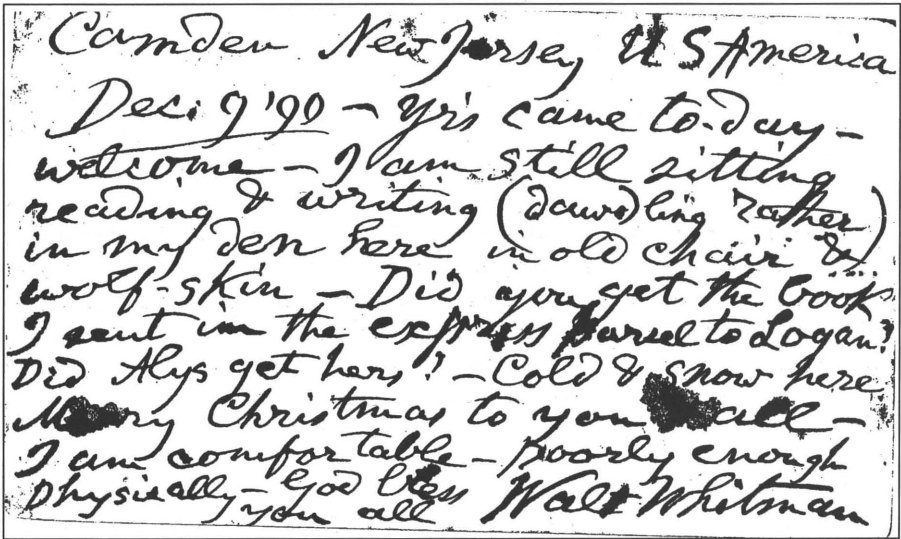 Camden New Jersey U S America
Dec. 9 '90 – Yr's came to-day –
welcome – I am still sitting
reading & writing (dawdling rather)
in my den here in old chair &
wolf-skin – Did you get the book
I sent in the express parcel to Logan?
Did Alys get hers? – Cold & snow here
Merry Christmas to you all –
I am comfortable – poorly enough
physically – God bless
you all Walt Whitman